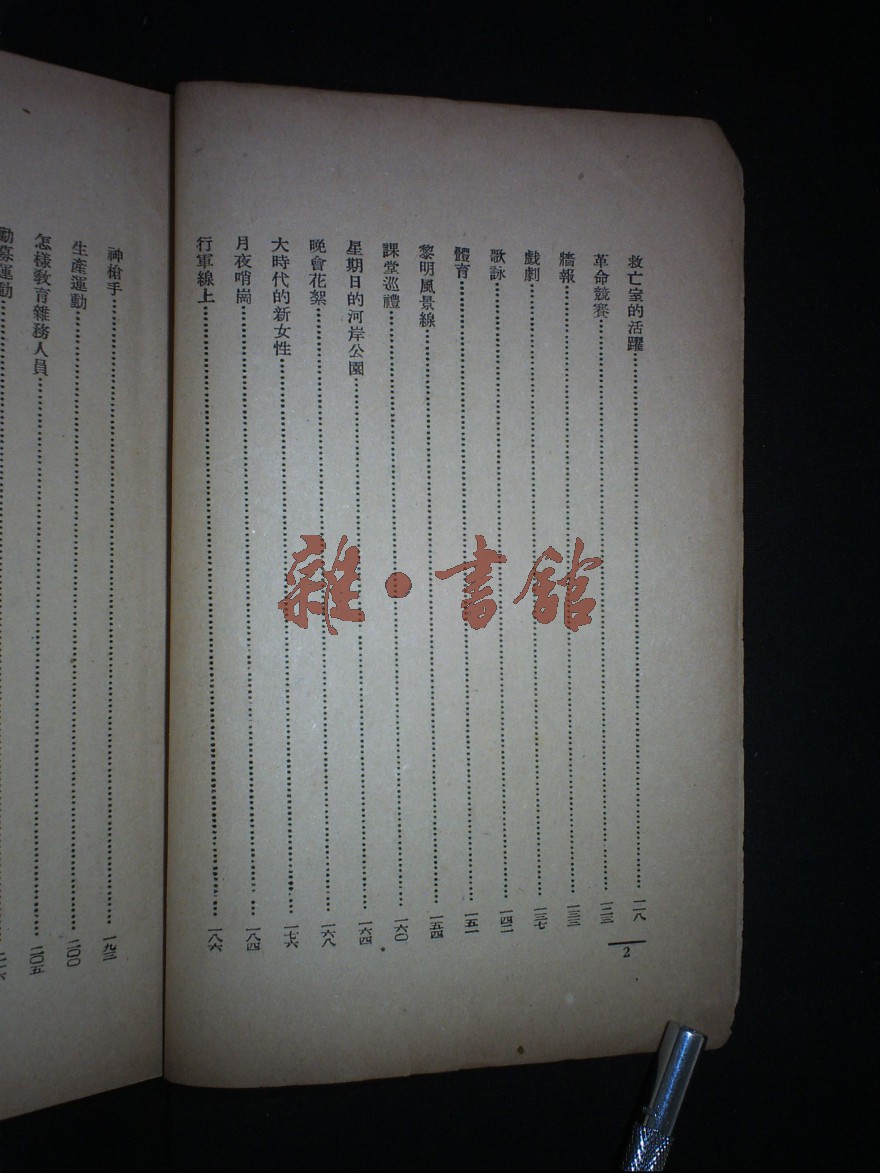 救亡室的活躍⋯⋯一一八
革命競賽⋯⋯一二三
牆報⋯⋯一三三
戲劇⋯⋯一三七
歌詠⋯⋯一四二
體育⋯⋯一五一
黎明風景線⋯⋯一五四
課堂巡禮⋯⋯一六〇
星期日的河岸公園⋯⋯一六四
晚會花絮⋯⋯一六八
大時代的新女性⋯⋯一七六
月夜哨崗⋯⋯一八四
行軍線上⋯⋯一八六
2
神槍手⋯⋯一九三
生產運動⋯⋯二〇〇
怎樣教育雜務人員⋯⋯二〇五
勤務運動⋯⋯二一六
雜·書館